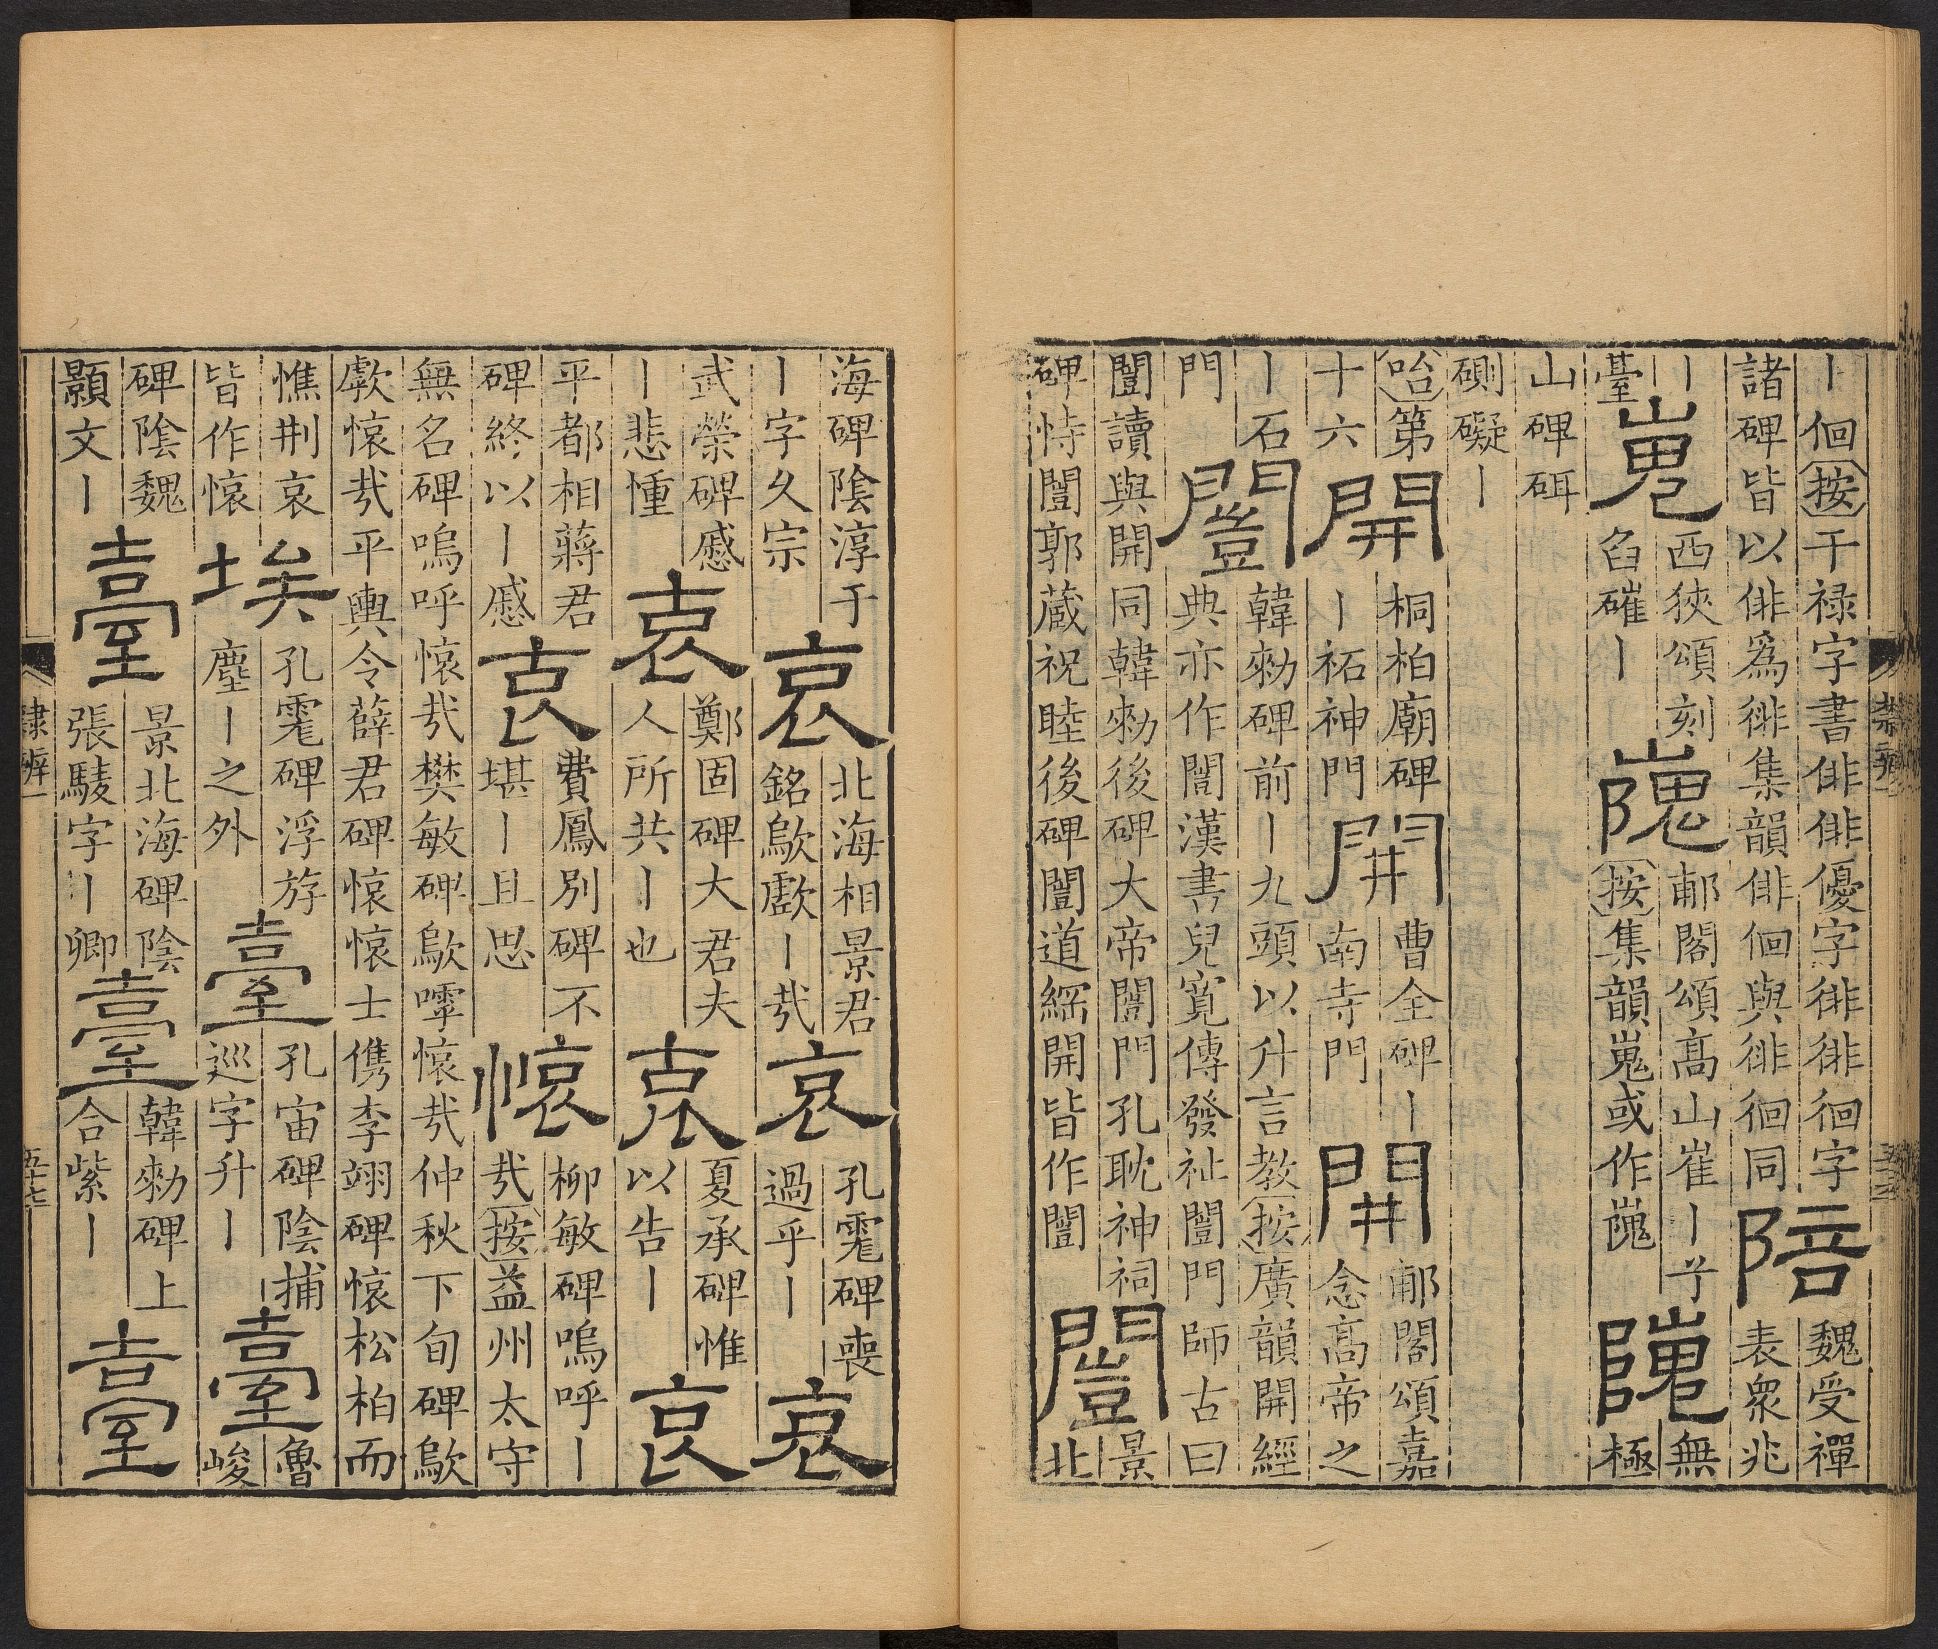 丨佪按干禄字書俳俳優字徘徘徊字
諸碑皆以俳爲徘集韻俳佪與徘徊同
陪
魏受禪
表衆兆
丨
臺
嵬
西狹頌刻
臽磪丨
㟴
郙閣頌高山崔丨兮
按集韻嵬或作㟴
㟴
無
極
山碑砠
硎礙丨
咍第
十六
開
桐柏廟碑
丨祏神門
開
曹全碑丨
南寺門
開
郙閣頌嘉
念高帝之
丨石
門
闓
韓勑碑前丨九頭以升言教按廣韻開經
典亦作闓漢書兒寬傳發祉闓門師古曰
闓讀與開同韓勑後碑大帝闓門孔耽神祠
碑恃闓郭蔵祝睦後碑闓道綱開皆作闓
闓
景
北
海碑陰淳于
丨字久宗
哀
北海相景君
銘歍歑丨㢤
哀
孔雮碑喪
過乎丨
哀
武榮碑慼
丨悲慟
哀
鄭固碑大君夫
人所共丨也
哀
夏承碑惟
以告丨
哀
平都相蔣君
碑終以丨慼
哀
費鳳別碑不
堪丨且思
懐
柳敏碑嗚呼丨
㢤按益州太守
無名碑嗚呼懐㢤樊敏碑歍嘑懐㢤仲秋下旬碑歍
歑懐㢤平輿令薛君碑懐懐士儁李翊碑懐松柏而
憔荆哀
皆作懐
埃
孔雮碑浮游
塵丨之外
臺
孔宙碑陰捕
巡字升丨
臺
魯
峻
碑陰魏
顥文丨
臺
景北海碑陰
張駿字丨卿
臺
韓勑碑上
合紫丨
臺
隸辨一
五十七